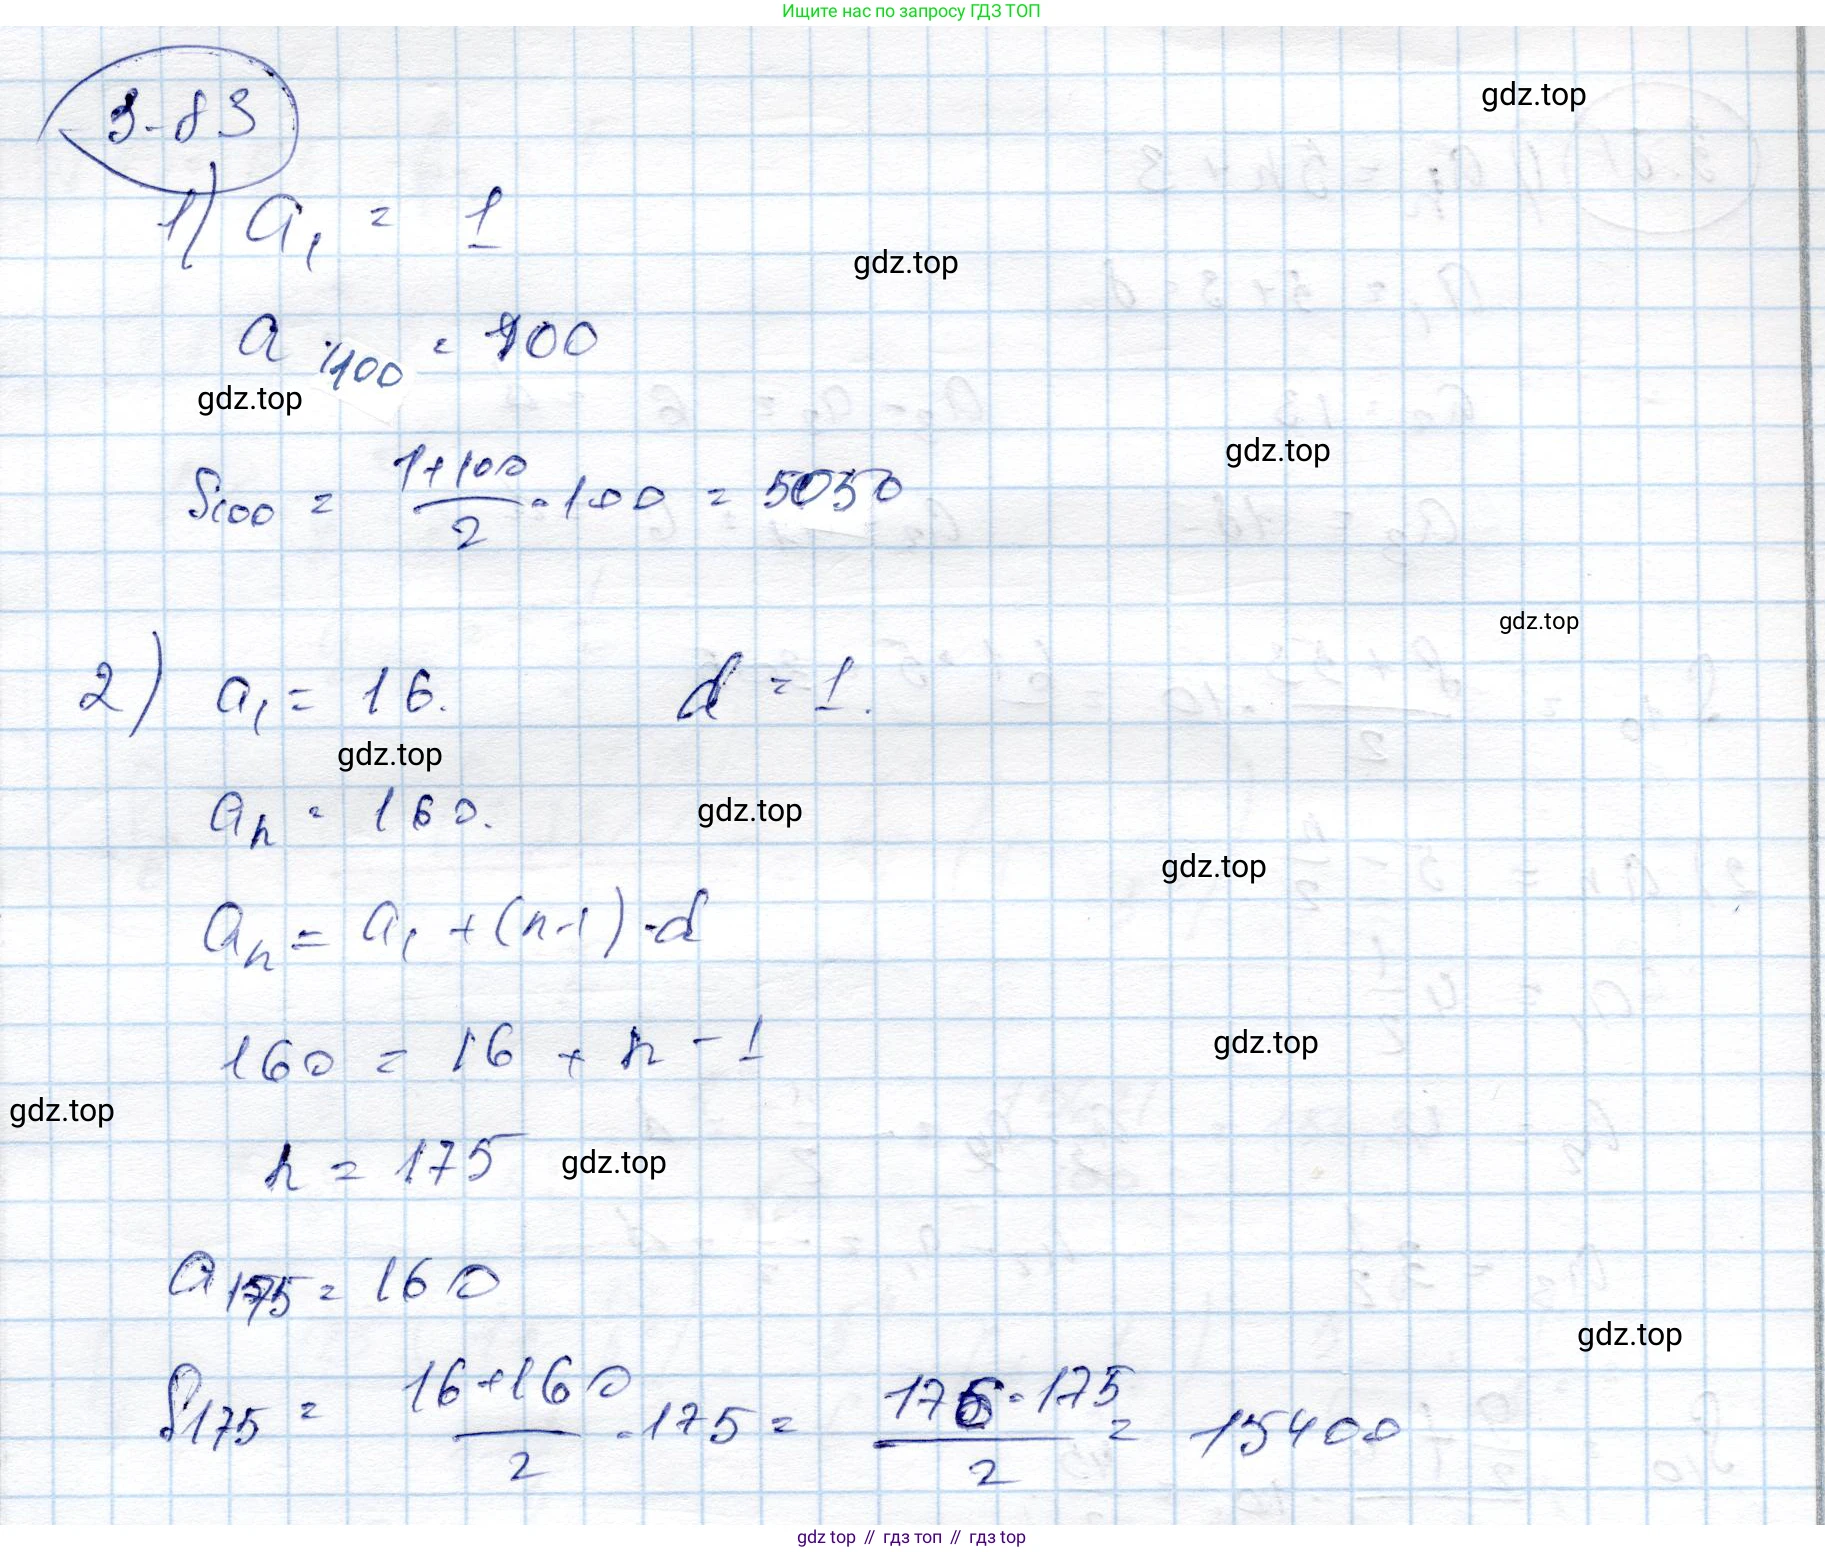 Ищите нас по запросу ГДЗ ТОП
3-83
gdz.top
1) a₁ = 1
gdz.top
a₁₀₀ = 100
gdz.top
gdz.top
S₁₀₀ = (1+100)/2 · 100 = 5050
gdz.top
2) a₁ = 16. d = 1.
gdz.top
aₙ = 160.
gdz.top
gdz.top
aₙ = a₁ + (n-1) · d
160 = 16 + n - 1
gdz.top
gdz.top
n = 175
gdz.top
a₁₇₅ = 160
gdz.top
S₁₇₅ = (16+160)/2 · 175 = (176 · 175)/2 = 15400
gdz top // гдз топ // гдз top